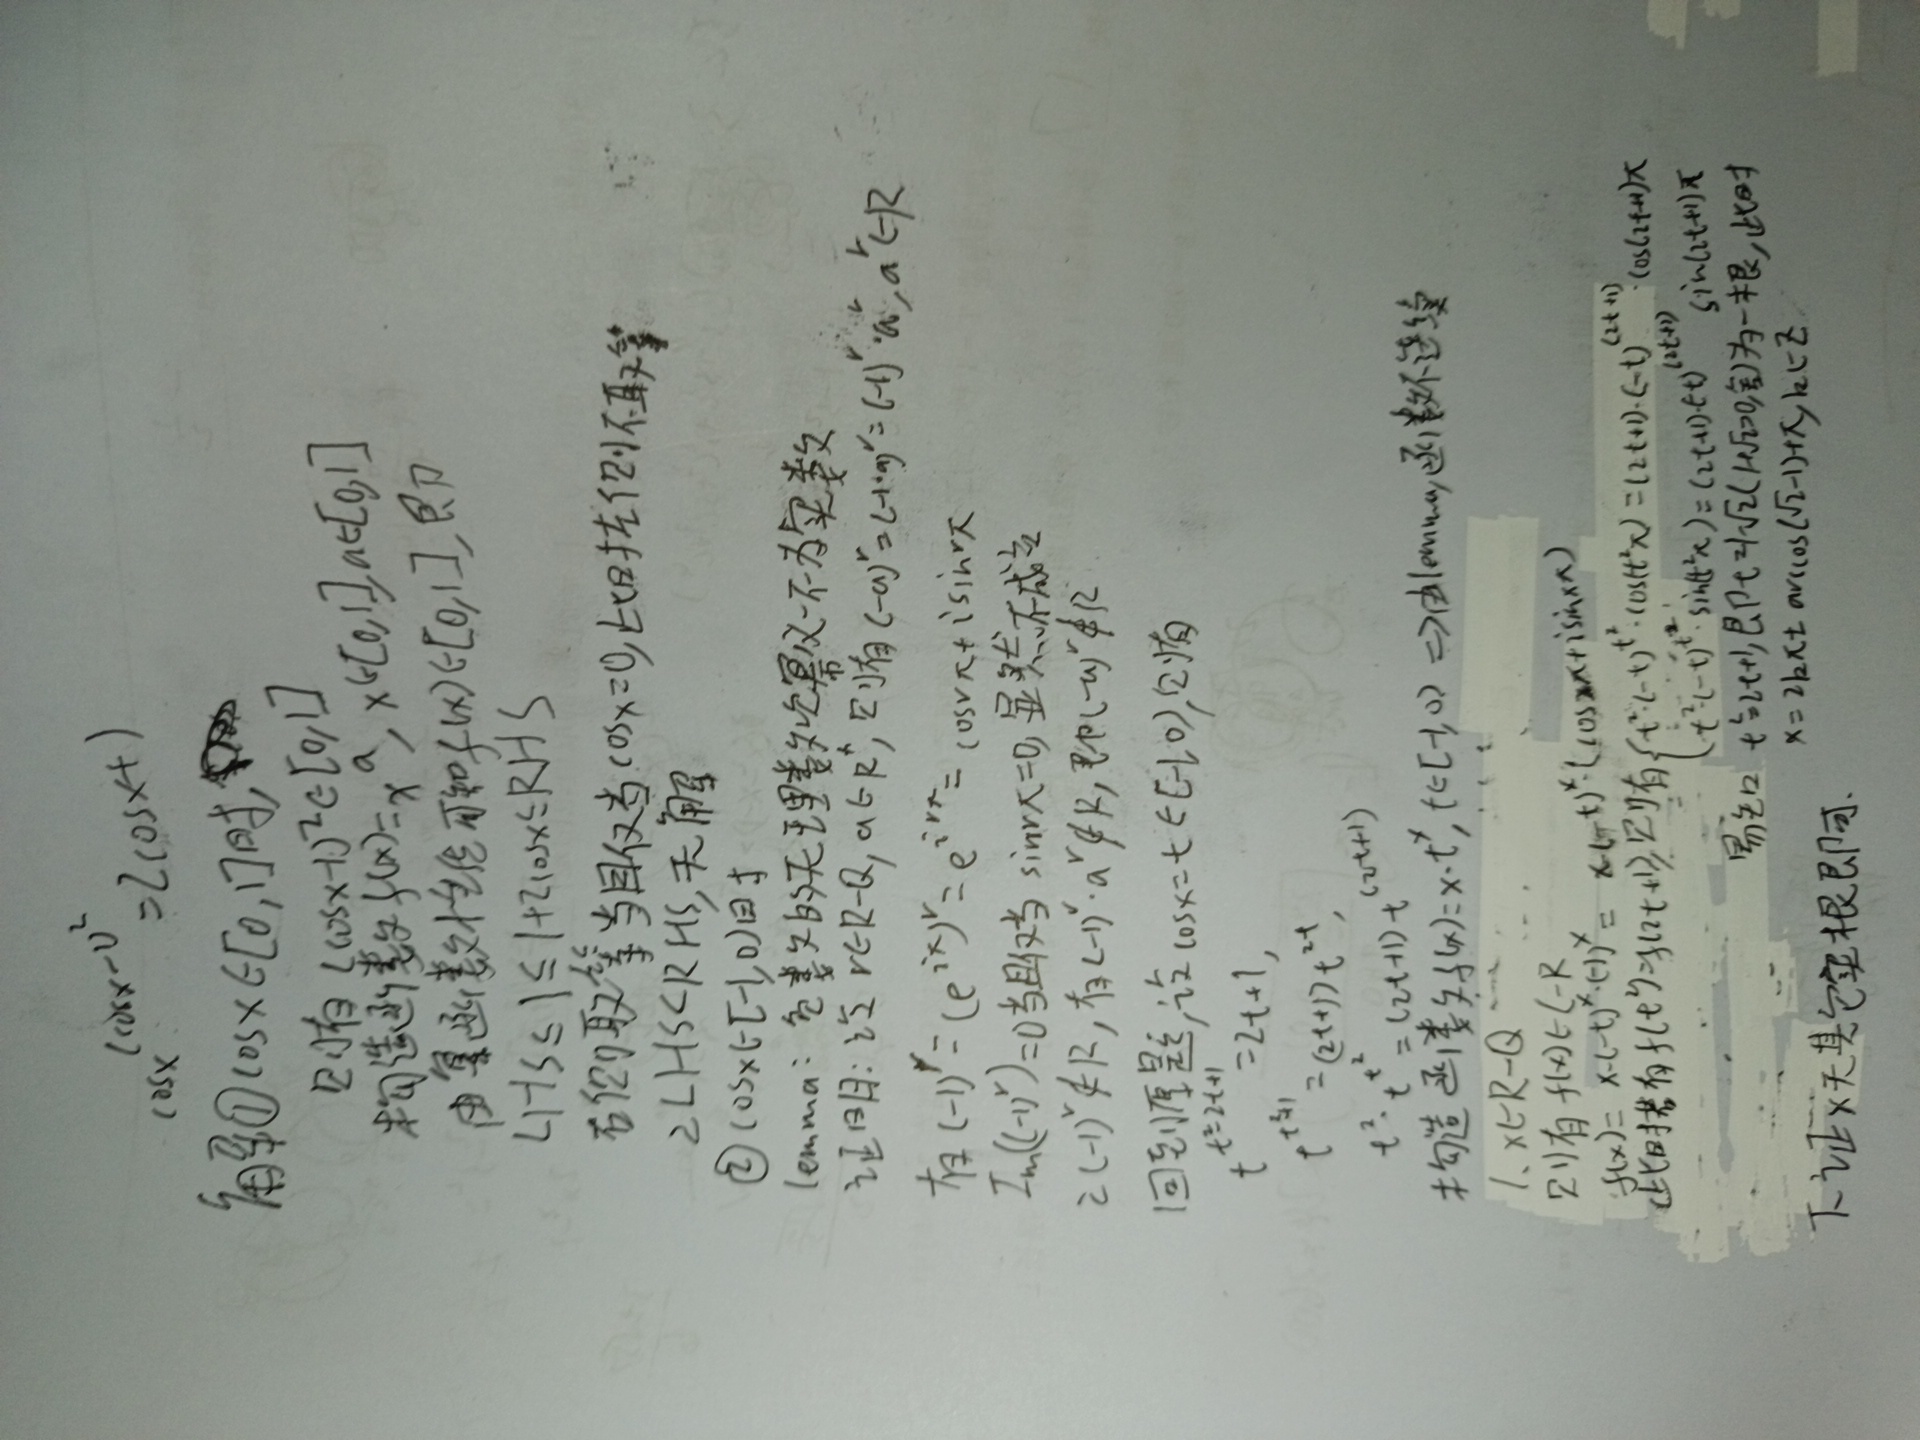 cosx^(cosx-1)² = 2cosx+1
解①cosx∈[0,1]时,
则有(cosx-1)²∈[0,1]
构造函数f(x)=x^a, x∈[0,1], a∈[0,1]
由幂函数性质可知f(x)∈[0,1], 即
LHS≤1≤1+2cosx=RHS
右侧取等当且仅当cosx=0, 此时左侧不取等
∴LHS<RHS, 无解
②cosx∈[-1,0)时
lemma: 负数的无理数次幂必不为实数
证明: 设r∈R-Q, a∈R⁺, 则有(-a)^r=(-1·a)^r=(-1)^r·a^r, a^r∈R
有(-1)^r=(e^iπ)^r=e^irπ=cosrπ+isinrπ
Im((-1)^r)=0当且仅当sinrπ=0, 显然不成立
∴(-1)^r∉R, 有(-1)^r·a^r∉R, 更即(-a)^r∉R
回到原题, 记cosx=t∈[-1,0), 则有
t^(t²-2t+1)=2t+1,
t^(t²+1)=(2t+1)t^2t,
t²·t^t²=(2t+1)t^(2t+1)
构造函数f(x)=x·t^x, t∈[-1,0) ⇒由lemma, 函数不连续
1、x∈R-Q
则有f(x)∈C-R
f(x)=x·(-t)^x·(-1)^x=x(-t)^x·(cosxπ+isinxπ)
此时若有f(t²)=f(2t+1), 则有{t²·(-t)^t²·cos(t²π)=(2t+1)·(-t)^(2t+1)·cos(2t+1)π
t²·(-t)^t²·sin(t²π)=(2t+1)·(-t)^(2t+1)·sin(2t+1)π
易知t²=2t+1, 即t=1-√2(1+√2>0, 舍)为一根, 此时
x=2kπ±arccos(√2-1)+π, k∈Z
下证x无其它实根即可.